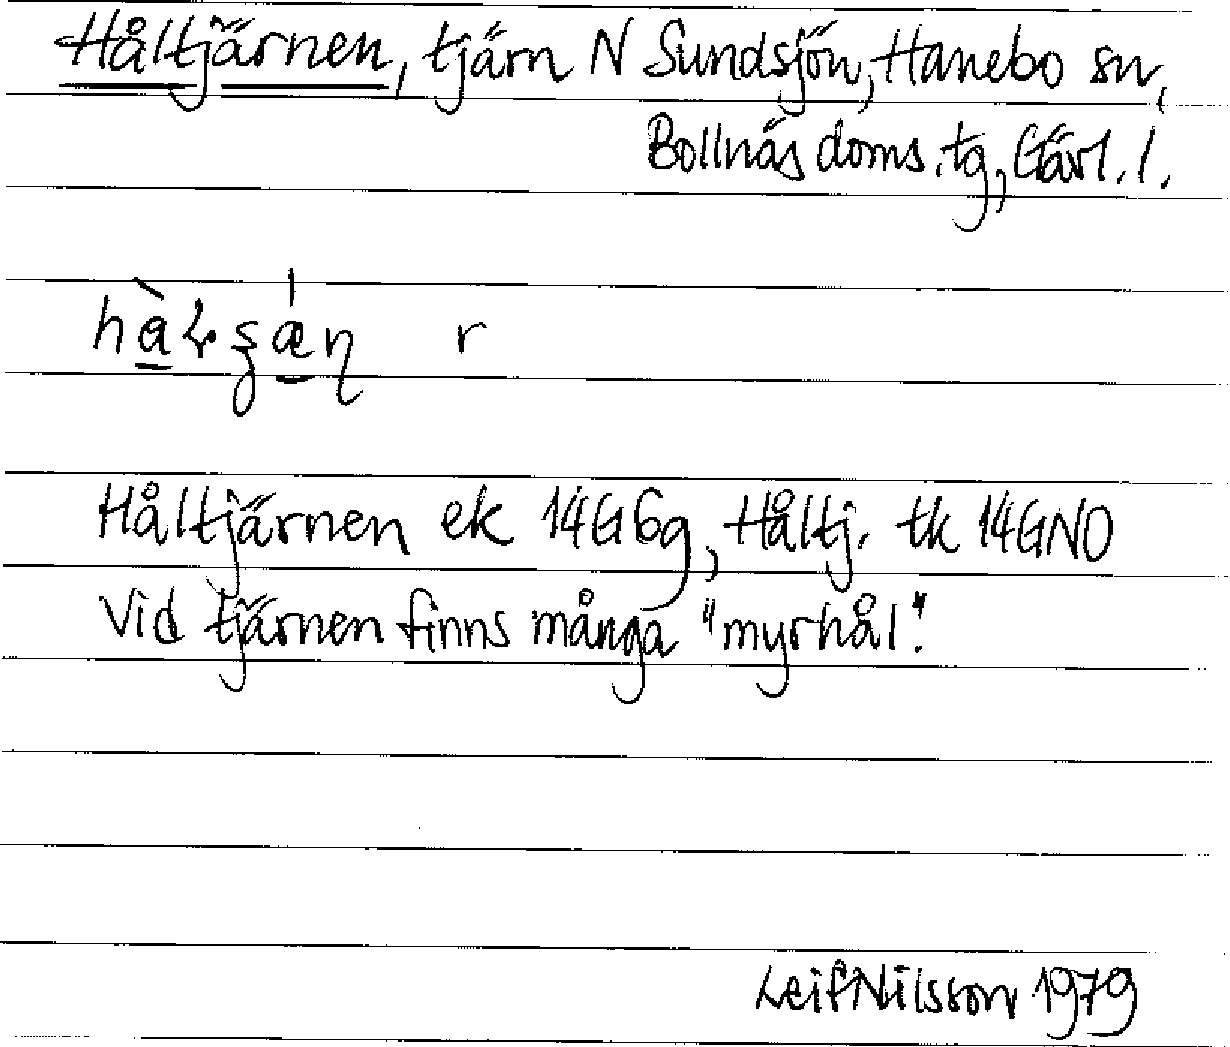 Håltjärnen, tjärn N Sundsjön, Hanebo sn,
Bollnäs doms. tg, Gävl. l.
r
Håltjärnen ek 14G6g, Håltj. tk 14GNO
Vid tjärnen finns många "myrhål".
Leif Nilsson 1979